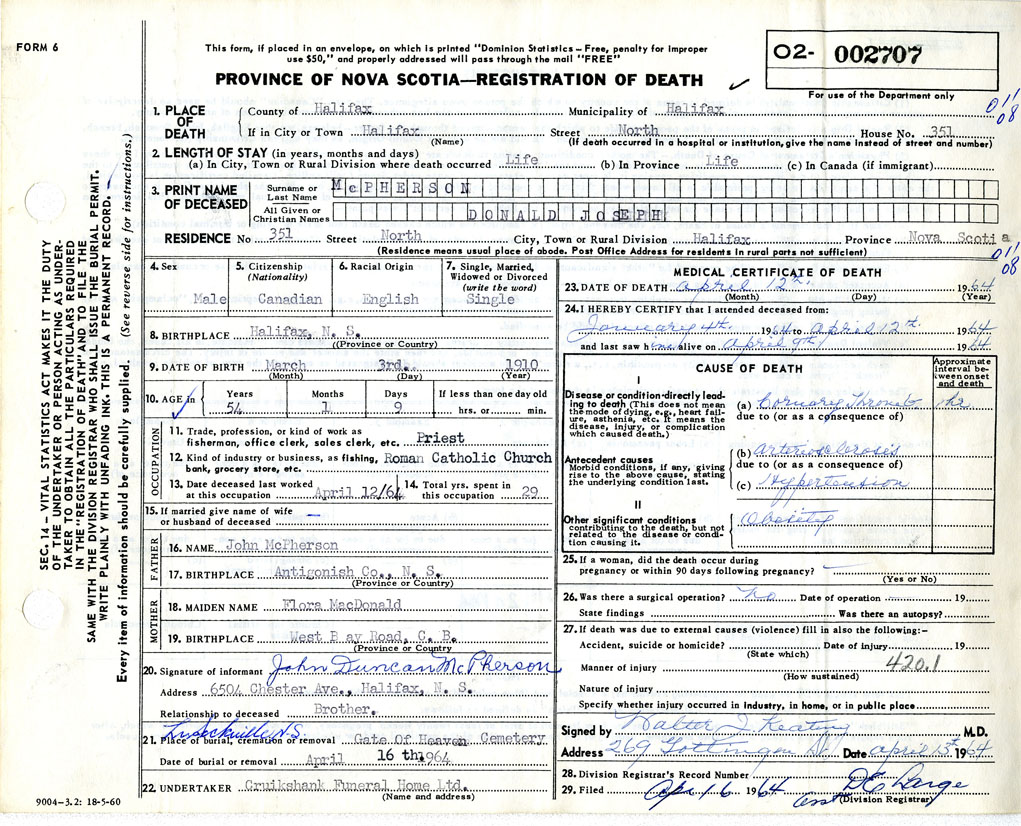 FORM 6
This form, if placed in an envelope, on which is printed "Dominion Statistics – Free, penalty for improper
use $50," and properly addressed will pass through the mail "FREE"
PROVINCE OF NOVA SCOTIA—REGISTRATION OF DEATH
02- 002707
For use of the Department only
011
08
1. PLACE OF DEATH
County of Halifax Municipality of Halifax
If in City or Town Halifax Street North House No. 351
(Name) (If death occurred in a hospital or institution, give the name instead of street and number)
2. LENGTH OF STAY (in years, months and days)
(a) In City, Town or Rural Division where death occurred Life (b) In Province Life (c) In Canada (if immigrant)
3. PRINT NAME OF DECEASED
Surname or Last Name McPHERSON
All Given or Christian Names DONALD JOSEPH
RESIDENCE No 351 Street North City, Town or Rural Division Halifax Province Nova Scotia
(Residence means usual place of abode. Post Office Address for residents in rural parts not sufficient)
011
08
4. Sex Male
5. Citizenship (Nationality) Canadian
6. Racial Origin English
7. Single, Married, Widowed or Divorced (write the word) Single
8. BIRTHPLACE Halifax, N. S.
(Province or Country)
9. DATE OF BIRTH March 3rd. 1910
(Month) (Day) (Year)
10. AGE in Years 54 Months 1 Days 9 If less than one day old hrs. or min.
OCCUPATION
11. Trade, profession, or kind of work as
fisherman, office clerk, sales clerk, etc. Priest
12. Kind of industry or business, as fishing, Roman Catholic Church
bank, grocery store, etc.
13. Date deceased last worked
at this occupation April 12/64
14. Total yrs. spent in
this occupation 29
15. If married give name of wife
or husband of deceased —
FATHER
16. NAME John McPherson
17. BIRTHPLACE Antigonish Co., N. S.
(Province or Country)
MOTHER
18. MAIDEN NAME Flora MacDonald
19. BIRTHPLACE West Bay Road, C. B.
(Province or Country)
20. Signature of informant John Duncan McPherson
Address 6504 Chester Ave., Halifax, N. S.
Relationship to deceased Brother.
Lr. Sackville, N.S.
21. Place of burial, cremation or removal Gate Of Heaven Cemetery
Date of burial or removal April 16 th. 1964
22. UNDERTAKER Cruikshank Funeral Home Ltd.
(Name and address)
9004-3.2: 18-5-60
MEDICAL CERTIFICATE OF DEATH
23. DATE OF DEATH April 12th. 1964
(Month) (Day) (Year)
24. I HEREBY CERTIFY that I attended deceased from:
January 4th. 1964 to April 12th. 1964
and last saw him alive on April 9th 1964
CAUSE OF DEATH
Approximate interval between onset and death
I
Disease or condition directly leading to death (This does not mean the mode of dying, e.g., heart failure, asthenia, etc. It means the disease, injury, or complication which caused death.)
(a) Coronary Thromb 1 hr
due to (or as a consequence of)
Antecedent causes
Morbid conditions, if any, giving rise to the above cause, stating the underlying condition last.
(b) Arteriosclerosis
due to (or as a consequence of)
(c) Hypertension
II
Other significant conditions
contributing to the death, but not related to the disease or condition causing it.
Obesity
25. If a woman, did the death occur during
pregnancy or within 90 days following pregnancy? —
(Yes or No)
26. Was there a surgical operation? No Date of operation 19
State findings Was there an autopsy?
27. If death was due to external causes (violence) fill in also the following:–
Accident, suicide or homicide? Date of injury 19
(State which)
420.1
Manner of injury
(How sustained)
Nature of injury
Specify whether injury occurred in industry, in home, or in public place
Signed by Walter J. Keating M.D.
Address 269 Gottingen St Date April 13th 1964
28. Division Registrar's Record Number
29. Filed Apr 16 1964 D E Large
Asst (Division Registrar)
SEC. 14 – VITAL STATISTICS ACT MAKES IT THE DUTY
OF THE UNDERTAKER OR PERSON ACTING AS UNDER-
TAKER TO OBTAIN ALL THE PARTICULARS REQUIRED
IN THE "REGISTRATION OF DEATH" AND TO FILE THE
SAME WITH THE DIVISION REGISTRAR WHO SHALL ISSUE THE BURIAL PERMIT.
WRITE PLAINLY WITH UNFADING INK. THIS IS A PERMANENT RECORD.
Every item of information should be carefully supplied. (See reverse side for instructions.)